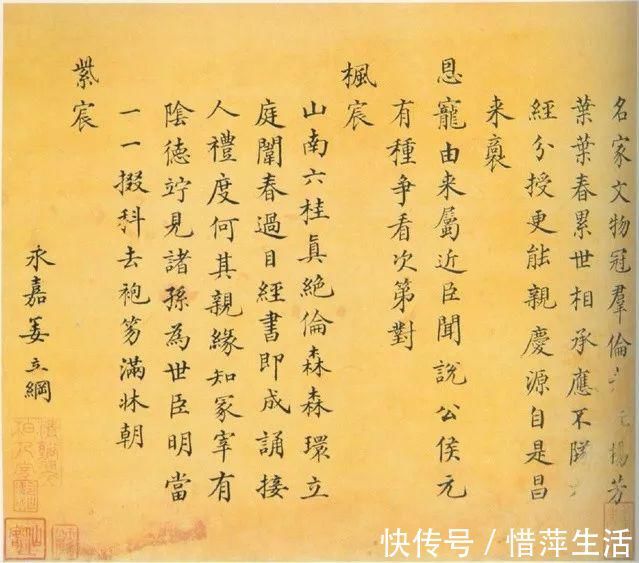 名家文物冠羣倫揚芳
葉葉春累世相承應不隊
經分授更能親慶源自是昌
来裔
恩寵由来屬近臣聞說公侯元
有種争看次第對
楓宸
山南六桂眞絕倫森森環立
庭闈春過目經書即成誦接
人禮度何其親緣知冢宰有
陰德竚見諸孫為世臣明當
一一掇科去袍笏滿牀朝
紫宸
永嘉姜立綱
快传号/惜萍生活